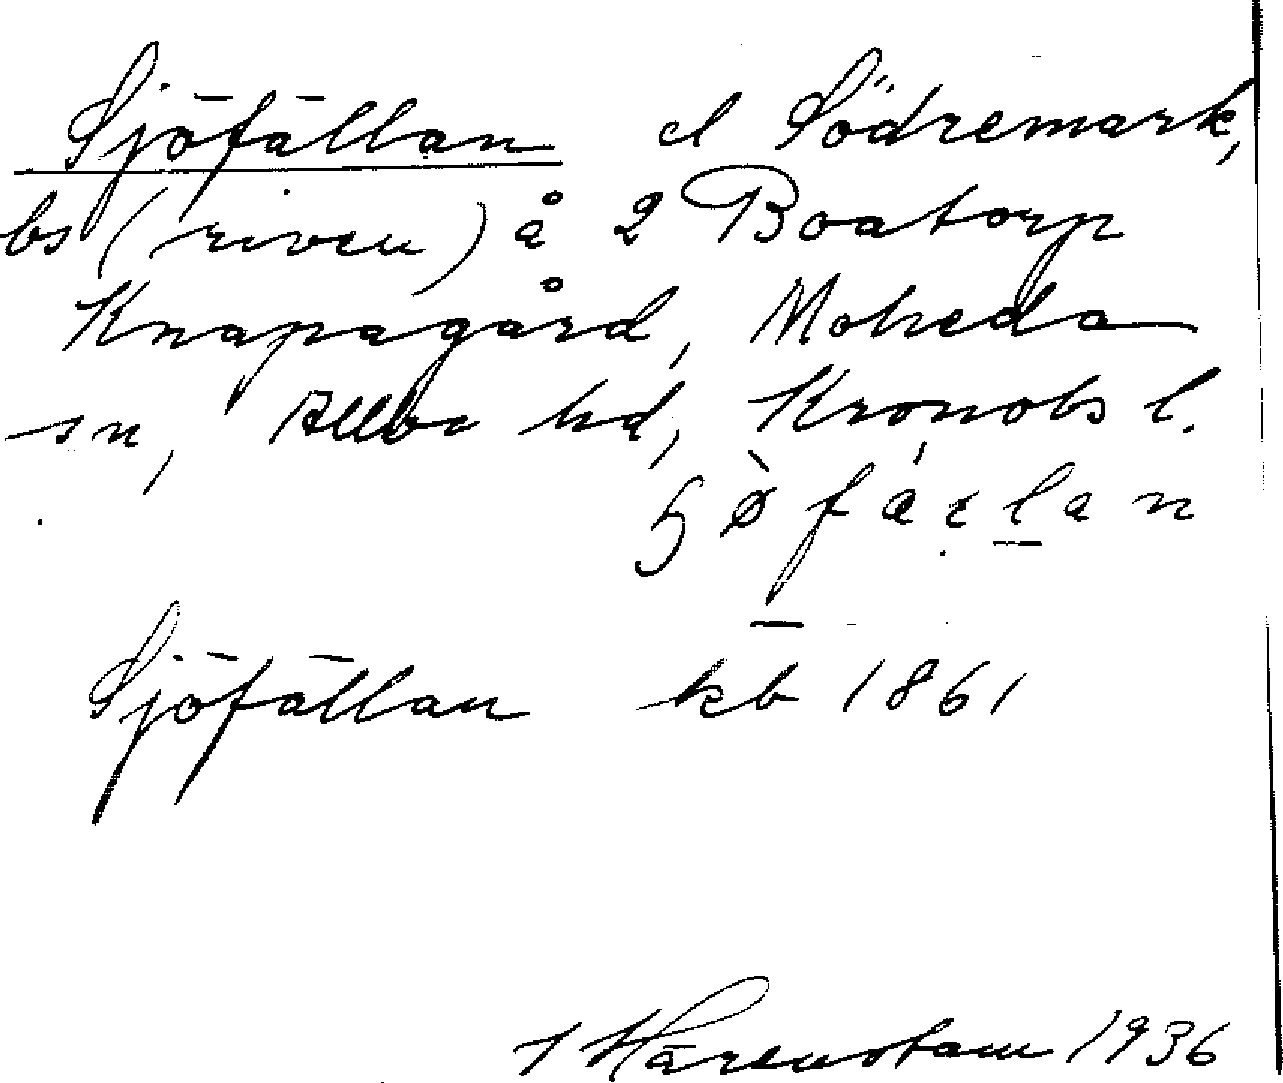 Sjöfällan el Södremark,
bs (riven) å 2 Boatorp
Knapagård, Moheda
sn, Allbo hd, Kronobs l.
Sjöfällan kb 1861
1936